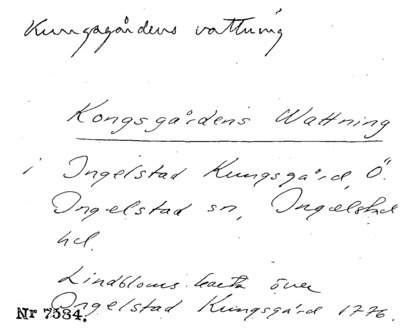 Kungagårdens vattning
Kongsgårdens Wattning
i Ingelstad Kungsgård, Ö.
Ingelstad sn, Ingelstad
hd.
Lindbloms karta över
Ingelstad Kungsgård 1776.
Nr 7584.